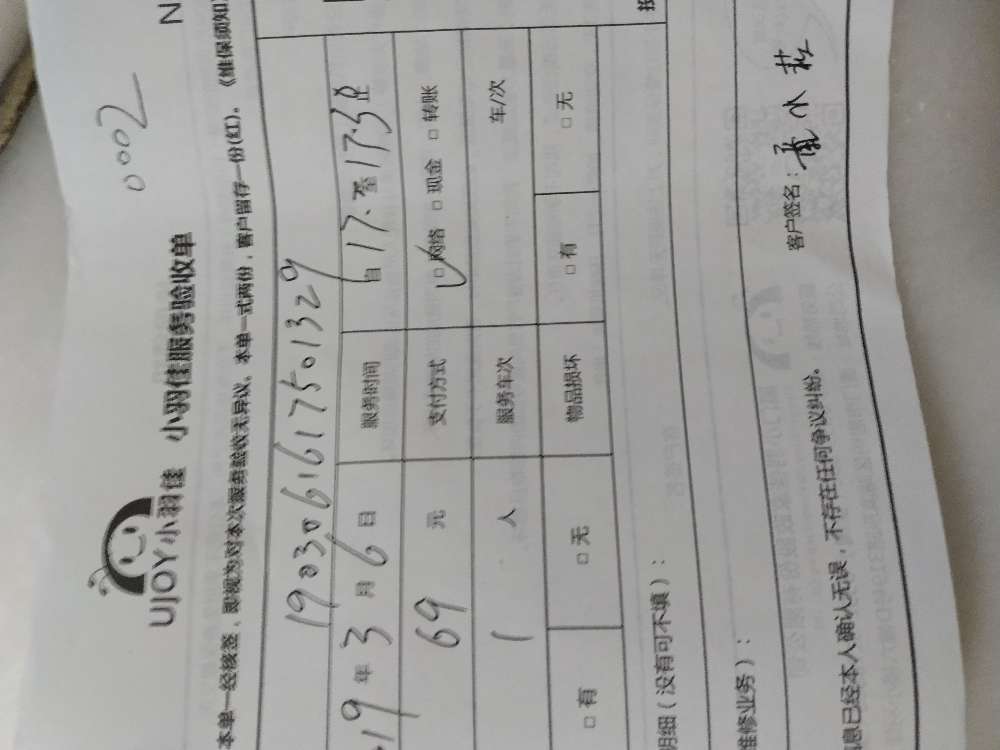 N
0002
UJOY小羽佳 小羽佳服务验收单
本单一经核签，即视为对本次服务验收无异议。本单一式两份，客户留存一份(红)。《维保须知》
1903061617501329
19年3月6日 服务时间 自17.至17:30止
69元 支付方式 □网络 □现金 □转账
1人 服务车次 车/次
□有 □无 物品损坏 □有 □无
明细（没有可不填）：
维修业务）：
客户签名：
息已经本人确认无误，不存在任何争议纠纷。